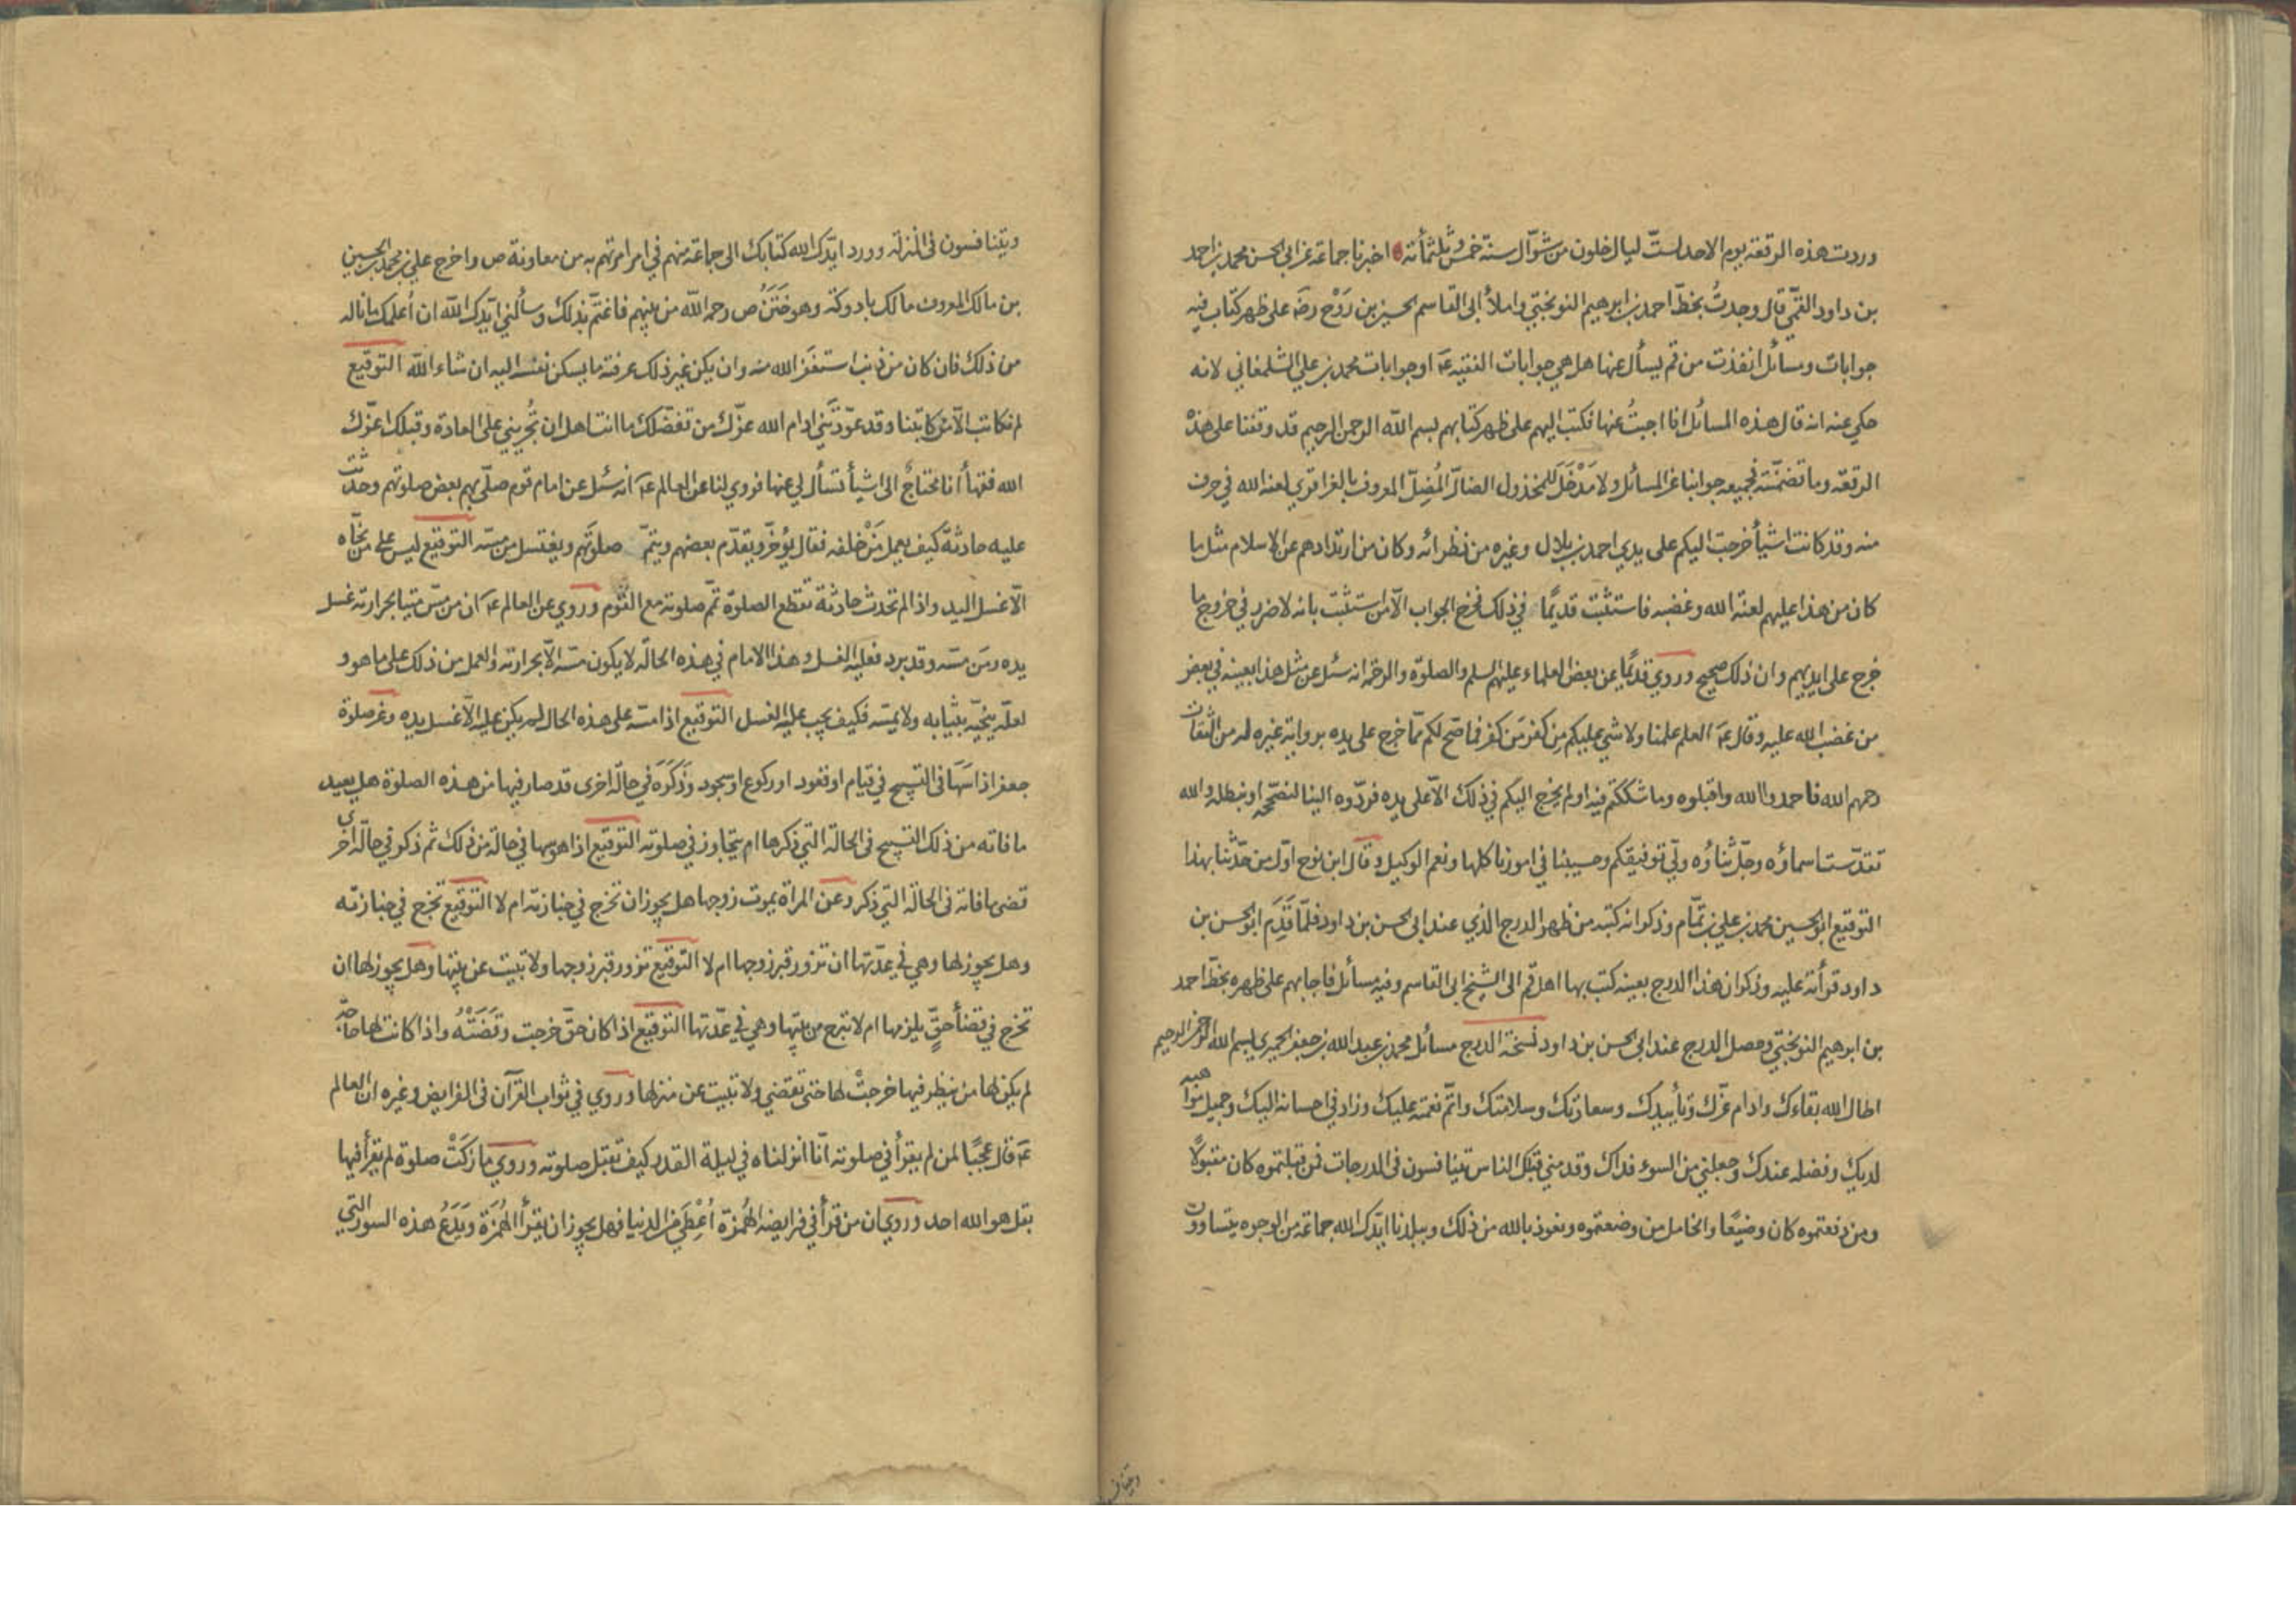 وردت هذه الرقعة يوم الاحد لست ليال خلون من شوّال سنة خمس وثلثمأئة اخبرنا جماعة عن ابي الحسن محمد بن احمد
بن داود القمّي قال وجدتُ بخطّ احمد بن ابرهيم النوبختي واملأ ابي القاسم الحسين بن رَوْح رضَ على ظهر كتاب فيه
جوابات ومسائل انفذت من قم يسأل عنها هل هي جوابات الفقيه عَ او جوابات محمد بن علي الشلمغاني لانه
حكي عنه انه قال هذه المسائل انا اجبتُ عنها فكتب اليهم على ظهر كتابهم بسم الله الرحمن الرحيم قد وقفنا على هذه
الرقعة وما تضمّنته فجميعه جوابنا عن المسائل ولا مَدْخَلَ للمخذول الضالّ المُضِلّ المعروف بالغراقري لعنه الله في حرف
منه وقد كانت اشيأ خرجت اليكم على يدي احمد بن بلال وغيره من نظرائه وكان من ارتدادهم عن الاسلام مثل ما
كان من هذا عليهم لعنة الله وغضبه فاستثبت قديمًا في ذلك فخرج الجواب الّا من استثبت بانه لا ضرر في خروج ما
خرج على ايديهم وان ذلك صحيح وروي قديمًا عن بعض العلماء عليهم السلم والصلوة والرحمة انه سئل عن مثل هذا بعينه في بعض
من غضب الله عليه وقال عَ العلم علمنا ولا شي عليكم مِن كفر مَن كفر فما صح لكم ممّا خرج على يده برواية غيره له من الثقات
رحمهم الله فاحمدوا الله واقبلوه وما شككتم فيه او لم يخرج اليكم في ذلك الّا على يده فردّوه الينا لنصّححه او نبطله والله
تقدّست اسماؤه وجلّ ثناؤه وليّ توفيقكم وحسبنا في امورنا كلها ونعم الوكيل وقال ابن نوح اوّل من حدّثنا بهذا
التوقيع ابو الحسين محمد بن علي بن تمّام وذكر انه كتبه من ظهر الدرج الذي عند ابي الحسن بن داود فلمّا قَدِم ابو الحسن بن
داود قرأته عليه وذكر ان هذا الدرج بعينه كتب بها اهل قم الى الشيخ ابي القاسم وفيه مسائل فاجابهم على ظهره بخطّ احمد
بن ابرهيم النوبختي وحصل الدرج عند ابي الحسن بن داود نسخة الدرج مسائل محمد بن عبد الله بن جعفر الحميري بسم الله الرحمن الرحيم
اطال الله بقاءك وادام عزّك وتأييدك وسعادتك وسلامتك واتمّ نعمته عليك وزاد في احسانه اليك وجميل مواهبه
لديك وفضله عندك وجعلني من السوء فداك وقدمني قبلك الناس يتنافسون في الدرجات فمن قبلتموه كان مقبولًا
ومن دفعتموه كان وضيعًا والخامل من وضعتموه ونعوذ بالله من ذلك وببلدنا ايّدك الله جماعة من الوجوه يتساوون
ويتنافسون في المنزلة وورد ايّدك الله كتابك الى جماعة منهم في امر امرتهم به من معاونة ص واخرج علي بن محمد بن الحسين
بن مالك المعروف مالك بادوكة وهو خَتَنُ ص رحمه الله من بينهم فاغتمّ بذلك وسألني ايّدك الله ان أعلمك ما ناله
من ذلك فان كان من ذنب استغفر الله منه وان يكن غير ذلك عرفته ما يسكن نفسه اليه ان شاء الله التوقيع
لم نكاتب الّا من كاتبنا وقد عوّدتَني ادام الله عزّك من تفضّلك ما انت اهل ان تُجريني على العادة وقبلك اعزّك
الله فقهأُ انا محتاجٌ الى اشيأ تسأل لي عنها فروي لنا عن العالم عَ انه سئل عن امام قوم صلّى بهم بعض صلوتهم وحدثت
عليه حادثة كيف يعمل مَنْ خلفه فقال يؤخّر ويقدّم بعضهم ويتمّ صلوتهم ويغتسل من مسّه التوقيع ليس على من نحّاه
الّا غسل اليد واذا لم تحدث حادثة تقطع الصلوة تمّ صلوته مع القوم وروي عن العالم عَ ان من مسّ ميتا بحرارته غسل
يده ومَن مسّه وقد برد فعليه الغسل وهذا الامام في هذه الحالة لا يكون مسّه الّا بحرارته والعمل من ذلك على ما هو و
لعلّه ينحّيه بثيابه ولا يمسّه فكيف يجب عليه الغسل التوقيع اذا مسّه على هذه الحال لم يكن عليه الّا غسل يده وعن صلوة
جعفر اذا سَهَا في التسبيح في قيام او قعود او ركوع او سجود وذَكَرَه في حالة اخرى قد صار فيها من هذه الصلوة هل يعيد
ما فاته من ذلك التسبيح في الحالة التي ذكرها ام يتجاوز في صلوته التوقيع اذا هو سها في حالة من ذلك ثم ذكر في حالة اخرى
قضى ما فاته في الحالة التي ذكر وعن المرأة يموت زوجها هل يجوز ان تخرج في جنازته ام لا التوقيع تخرج في جنازته
وهل يجوز لها وهي في عدّتها ان تزور قبر زوجها ام لا التوقيع تزور قبر زوجها ولا تبيت عن بيتها وهل يجوز لها ان
تخرج في قضأ حقٍّ يلزمها ام لا تبرح من بيتها وهي في عدّتها التوقيع اذا كان حقّ خرجت وقَضَتْهُ واذا كانت لها حاجة
لم يكن لها من ينظر فيها خرجتْ لها حتى تقضي ولا تبيت عن منزلها وروي في ثواب القرآن في الفرايض وغيره ان العالم
عَ قال عجبًا لمن لم يقرأ في صلوته انّا انزلناه في ليلة القدر كيف تقبل صلوته وروي ما زكَتْ صلوة لم يقرأ فيها
بقل هو الله احد وروي ان من قرأ في فرايضه الهُمزة اُعْطِيَ من الدنيا فهل يجوز ان يقرأ الهُمَزة ويَدَعُ هذه السور التي